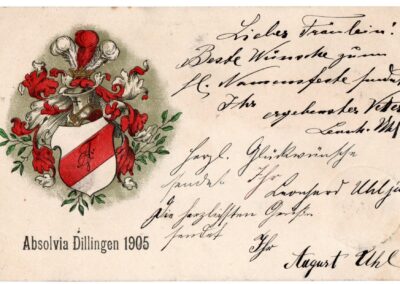 Liebes Fräulein!
Beste Wünsche zum
hl. Namensfeste sendet
Ihr
ergebenster Vetter
Leonh. Uhl
herzl. Glückwünsche
sendet Ihr
Leonhard Uhl jun
Die herzlichsten Grüße
sendet
Ihr
August Uhl
Absolvia Dillingen 1905